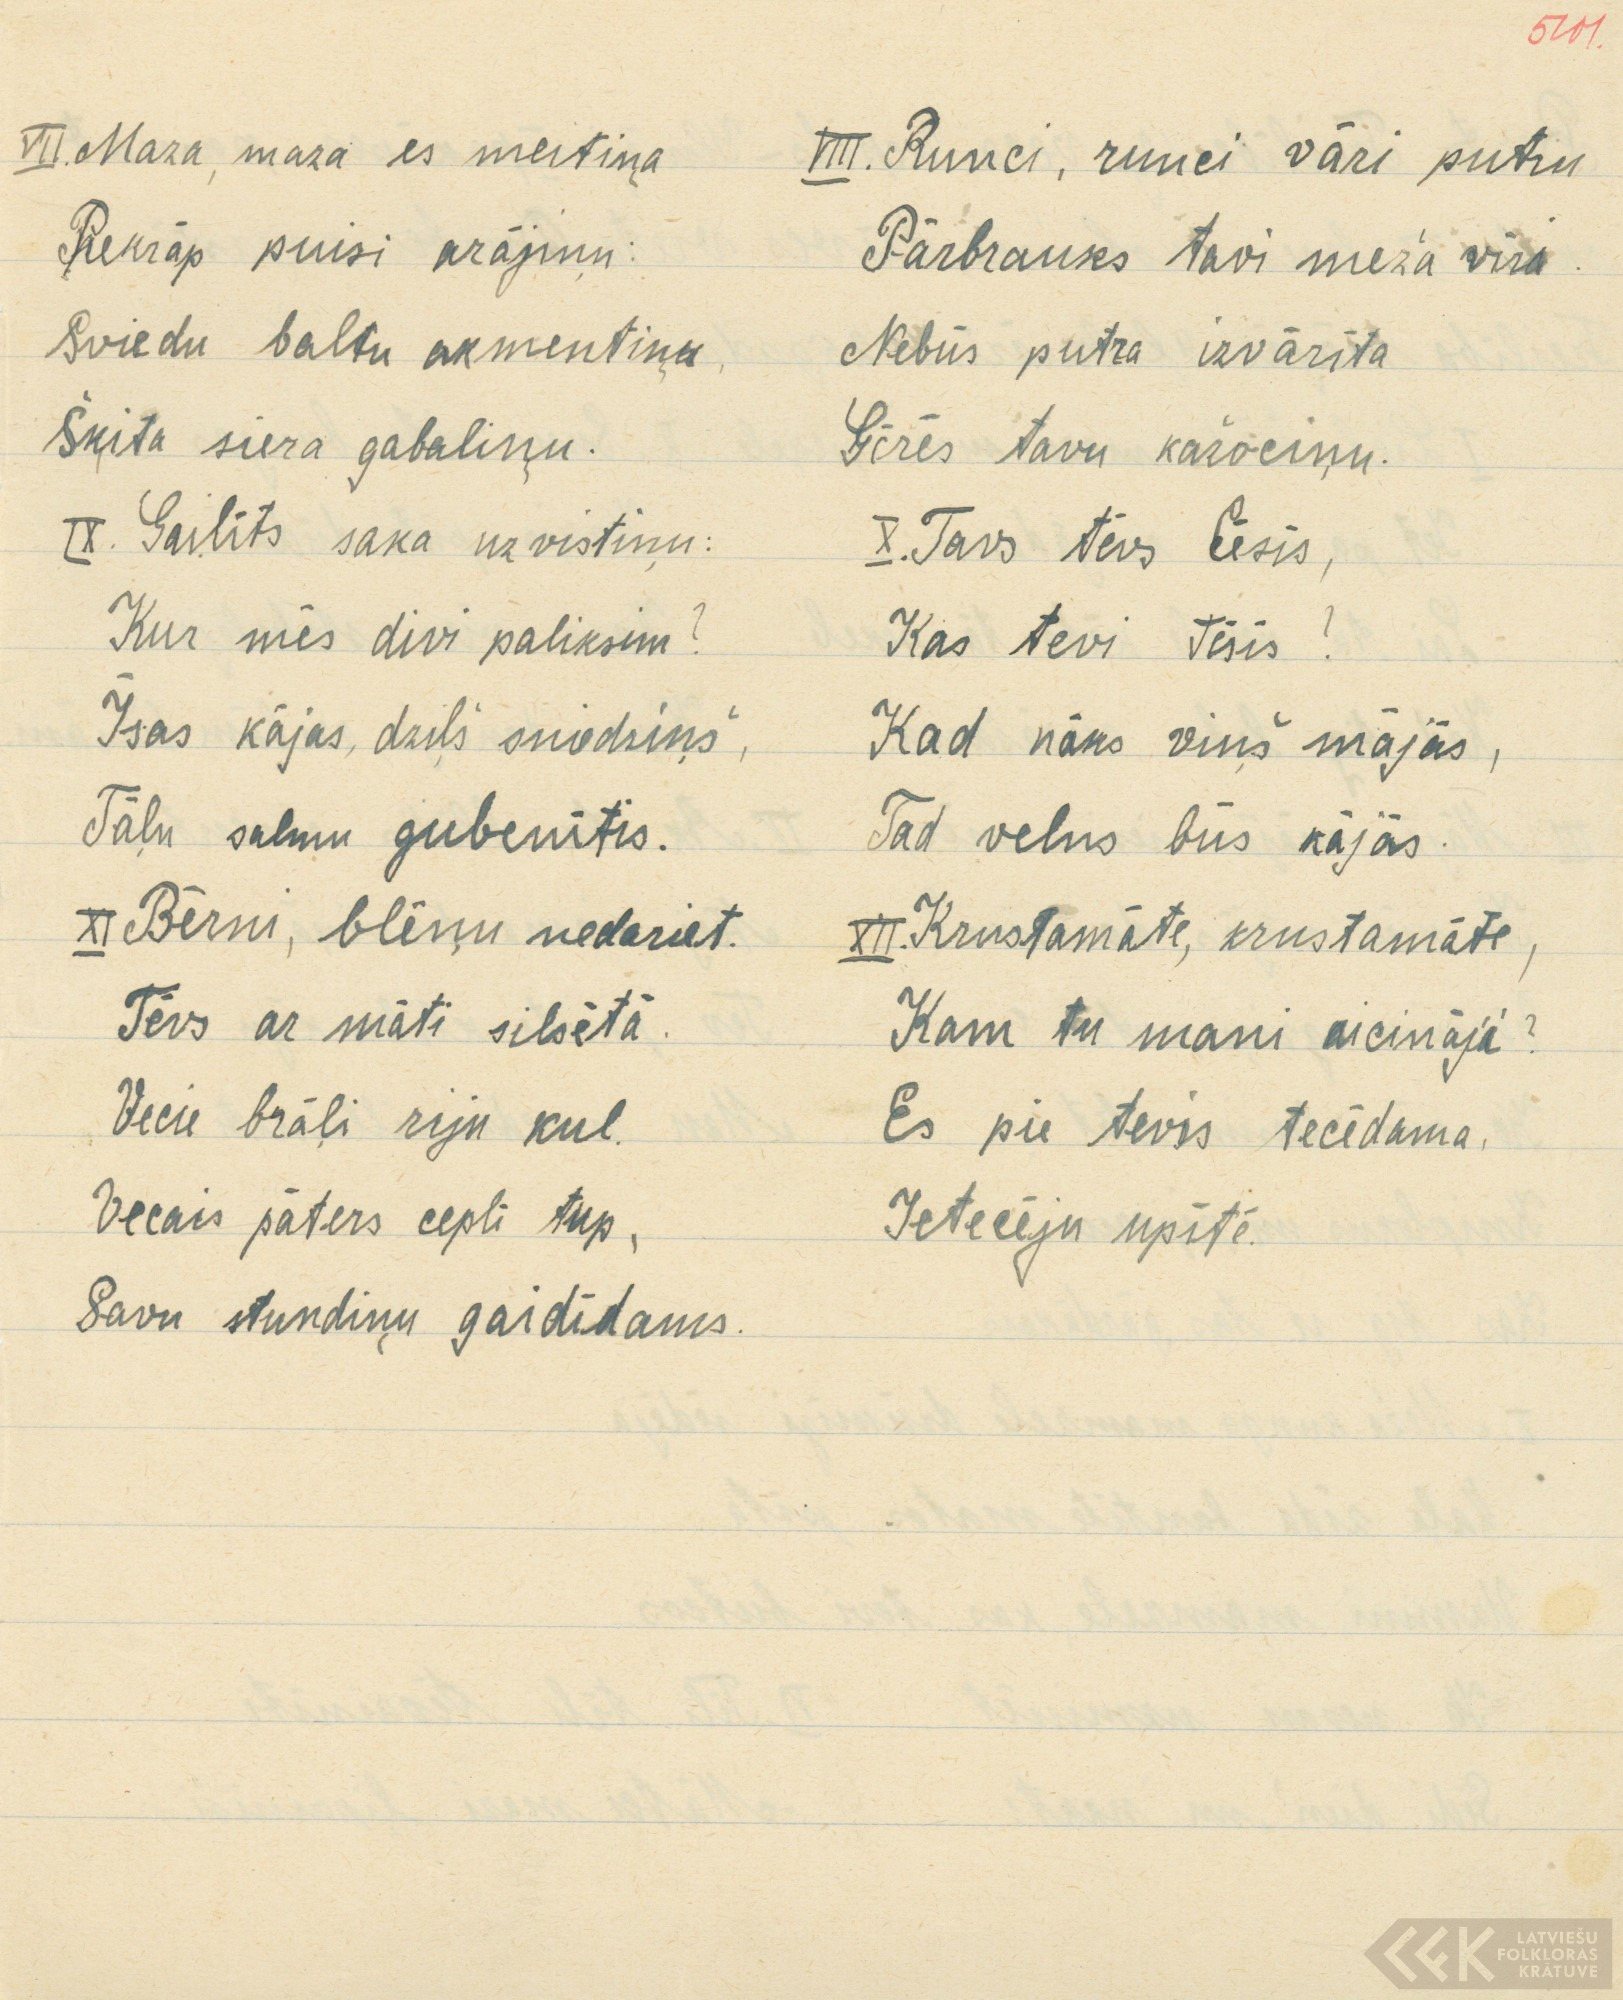 5201.
VII. Maza, maza es meitiņa
Piekrāp puisi arājiņu:
Sviedu baltu akmentiņu,
Šķita siera gabaliņu.
VIII. Runci, runci vāri putru
Pārbrauks tavi meža vīri.
Nebūs putra izvārīta
Ģērēs tavu kažociņu.
IX. Gailīts saka uz vistiņu:
Kur mēs divi paliksim?
Īsas kājas, dziļš sniedziņš,
Tāļu salmu gubenītis.
X. Tavs tēvs Cēsīs,
Kas tevi tēsīs?
Kad nāks viņš mājās,
Tad velns būs kājās.
XI Bērni, blēņu nedariet.
Tēvs ar māti silsētā.
Vecie brāļi riju kul.
Vecais pāters ceplī tup,
Savu stundiņu gaidīdams.
XII. Krustamāte, krustamāte,
Kam tu mani aicināji?
Es pie tevis tecēdama.
Ietecēju upītē.
LATVIEŠU
FOLKLORAS
KRĀTUVE